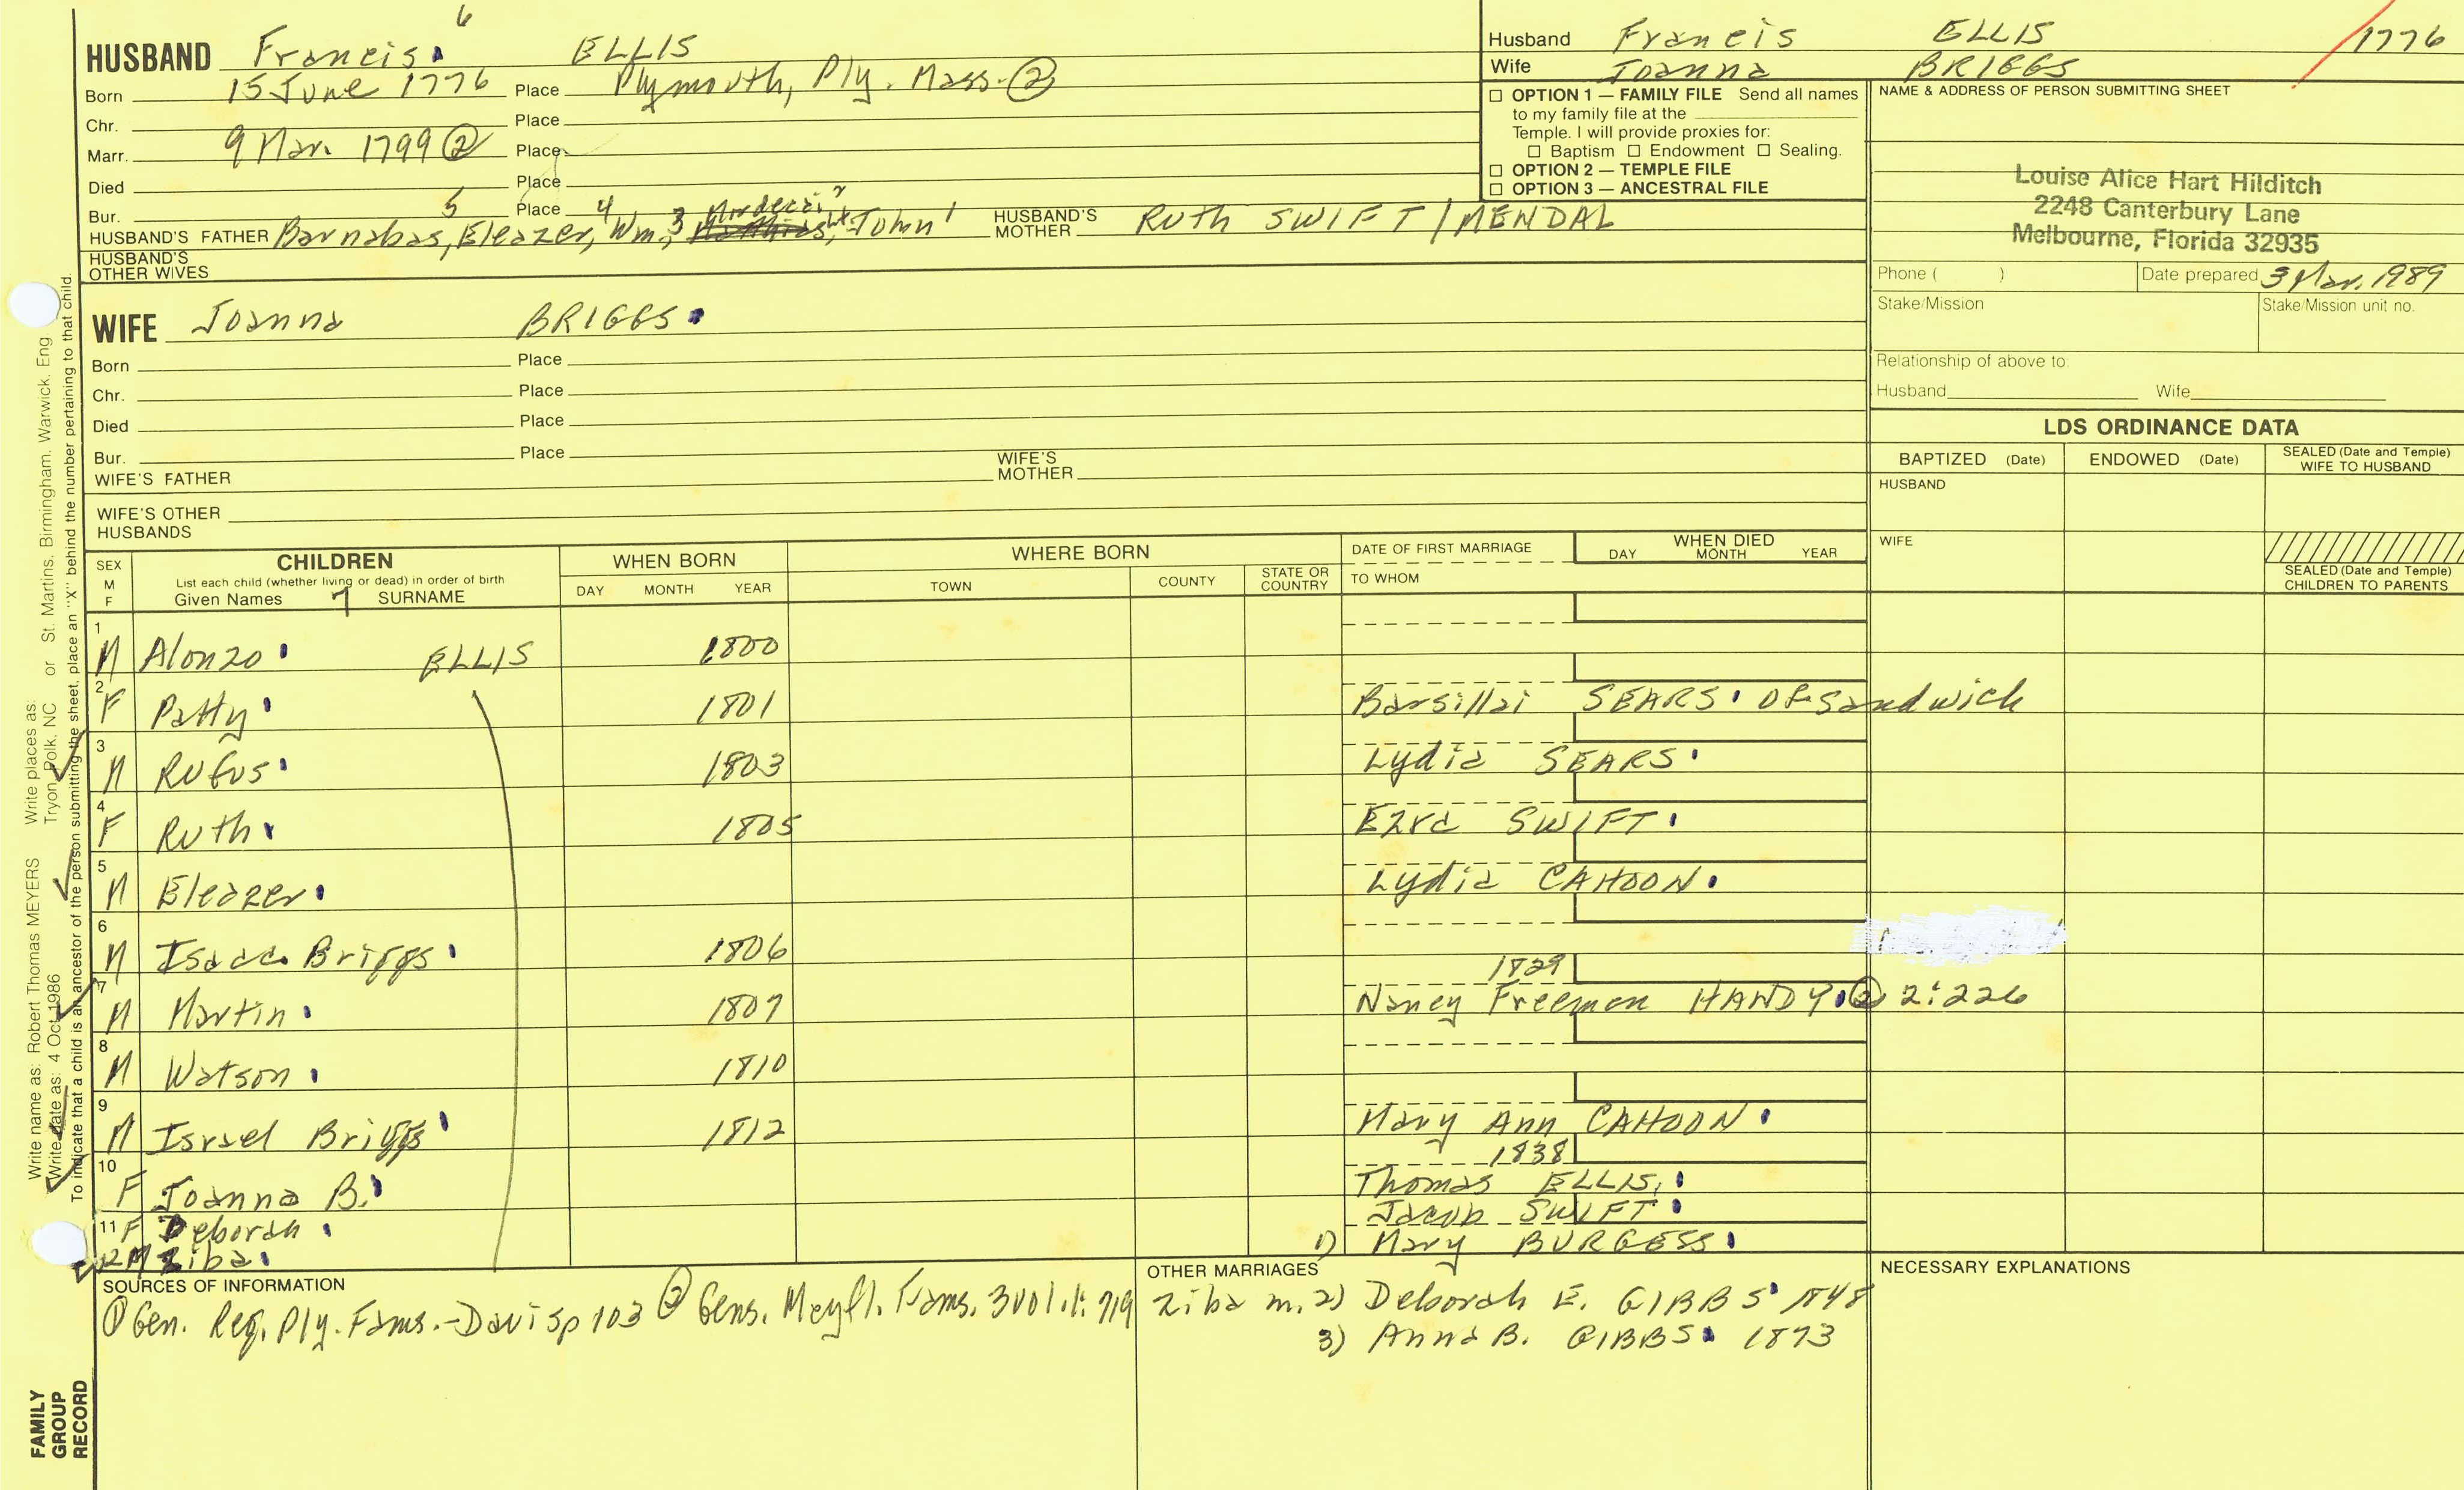 6
HUSBAND Francis ELLIS
Born 15 June 1776 Place Plymouth, Ply. Mass. ②
Chr. Place
Marr. 9 Mar. 1799 ② Place
Died Place
Bur. Place
HUSBAND'S FATHER Barnabas, 5 Eleazer, 4 Wm., 3 Mordecai, 2 John 1 HUSBAND'S MOTHER RUTH SWIFT / MENDAL
HUSBAND'S OTHER WIVES
WIFE Joanna BRIGGS
Born Place
Chr. Place
Died Place
Bur. Place
WIFE'S FATHER WIFE'S MOTHER
WIFE'S OTHER HUSBANDS
Husband Francis ELLIS 1776
Wife Joanna BRIGGS
☐ OPTION 1 — FAMILY FILE Send all names
to my family file at the
Temple. I will provide proxies for:
☐ Baptism ☐ Endowment ☐ Sealing.
☐ OPTION 2 — TEMPLE FILE
☐ OPTION 3 — ANCESTRAL FILE
NAME & ADDRESS OF PERSON SUBMITTING SHEET
Louise Alice Hart Hilditch
2248 Canterbury Lane
Melbourne, Florida 32935
Phone ( ) Date prepared 3 Mar. 1989
Stake/Mission Stake/Mission unit no.
Relationship of above to:
Husband Wife
LDS ORDINANCE DATA
BAPTIZED (Date) ENDOWED (Date) SEALED (Date and Temple) WIFE TO HUSBAND
HUSBAND
WIFE
SEALED (Date and Temple) CHILDREN TO PARENTS
SEX M F CHILDREN WHEN BORN WHERE BORN DATE OF FIRST MARRIAGE WHEN DIED
List each child (whether living or dead) in order of birth
Given Names 7 SURNAME DAY MONTH YEAR TOWN COUNTY STATE OR COUNTRY TO WHOM DAY MONTH YEAR
1 M Alonzo ELLIS 1800
2 F Patty 1801 Barsillai SEARS of Sandwich
3 M Rufus 1803 Lydia SEARS
4 F Ruth 1805 Ezra SWIFT
5 M Eleazer Lydia CAHOON
6 M Isaac Briggs 1806
7 M Martin 1807 1829 Nancy Freeman HANDY ② 2:226
8 M Watson 1810
9 M Israel Briggs 1812 Mary Ann CAHOON
10 F Joanna B. 1838 Thomas ELLIS
11 F Deborah Jacob SWIFT
12 M Ziba 1) Mary BURGESS
SOURCES OF INFORMATION
① Gen. Reg. Ply. Fams. - Davis p 103 ② Gens. Meyfl. Fams. 3 vol. 1: 719
OTHER MARRIAGES
Ziba m. 2) Deborah E. GIBBS 1848
3) Anna B. GIBBS 1873
NECESSARY EXPLANATIONS
Write name as: Robert Thomas MEYERS Write places as: Tryon, Polk, NC or St. Martins, Birmingham, Warwick, Eng.
Write date as: 4 Oct 1986
To indicate that a child is an ancestor of the person submitting the sheet, place an "X" behind the number pertaining to that child.
FAMILY
GROUP
RECORD